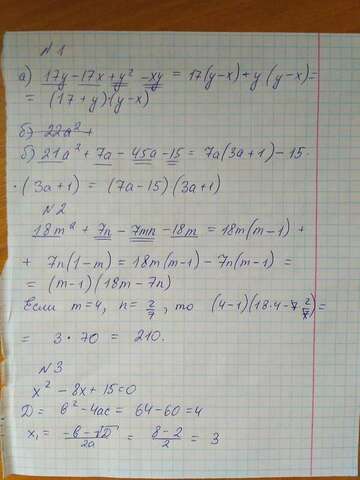 N 1
а) 17y - 17x + y² - xy = 17(y-x) + y(y-x) =
= (17 + y)·(y-x)
б) 22a² +
б) 21a² + 7a - 45a - 15 = 7a(3a+1) - 15·
·(3a+1) = (7a-15)(3a+1)
N 2
18m² + 7n - 7mn - 18m = 18m(m-1) +
+ 7n(1-m) = 18m(m-1) - 7n(m-1) =
= (m-1)(18m-7n)
Если m=4, n=2/7, то (4-1)(18·4-7·2/7)=
= 3·70 = 210.
N 3
x² - 8x + 15 = 0
D = b² - 4ac = 64 - 60 = 4
x₁ = (-b-√D)/2a = (8-2)/2 = 3